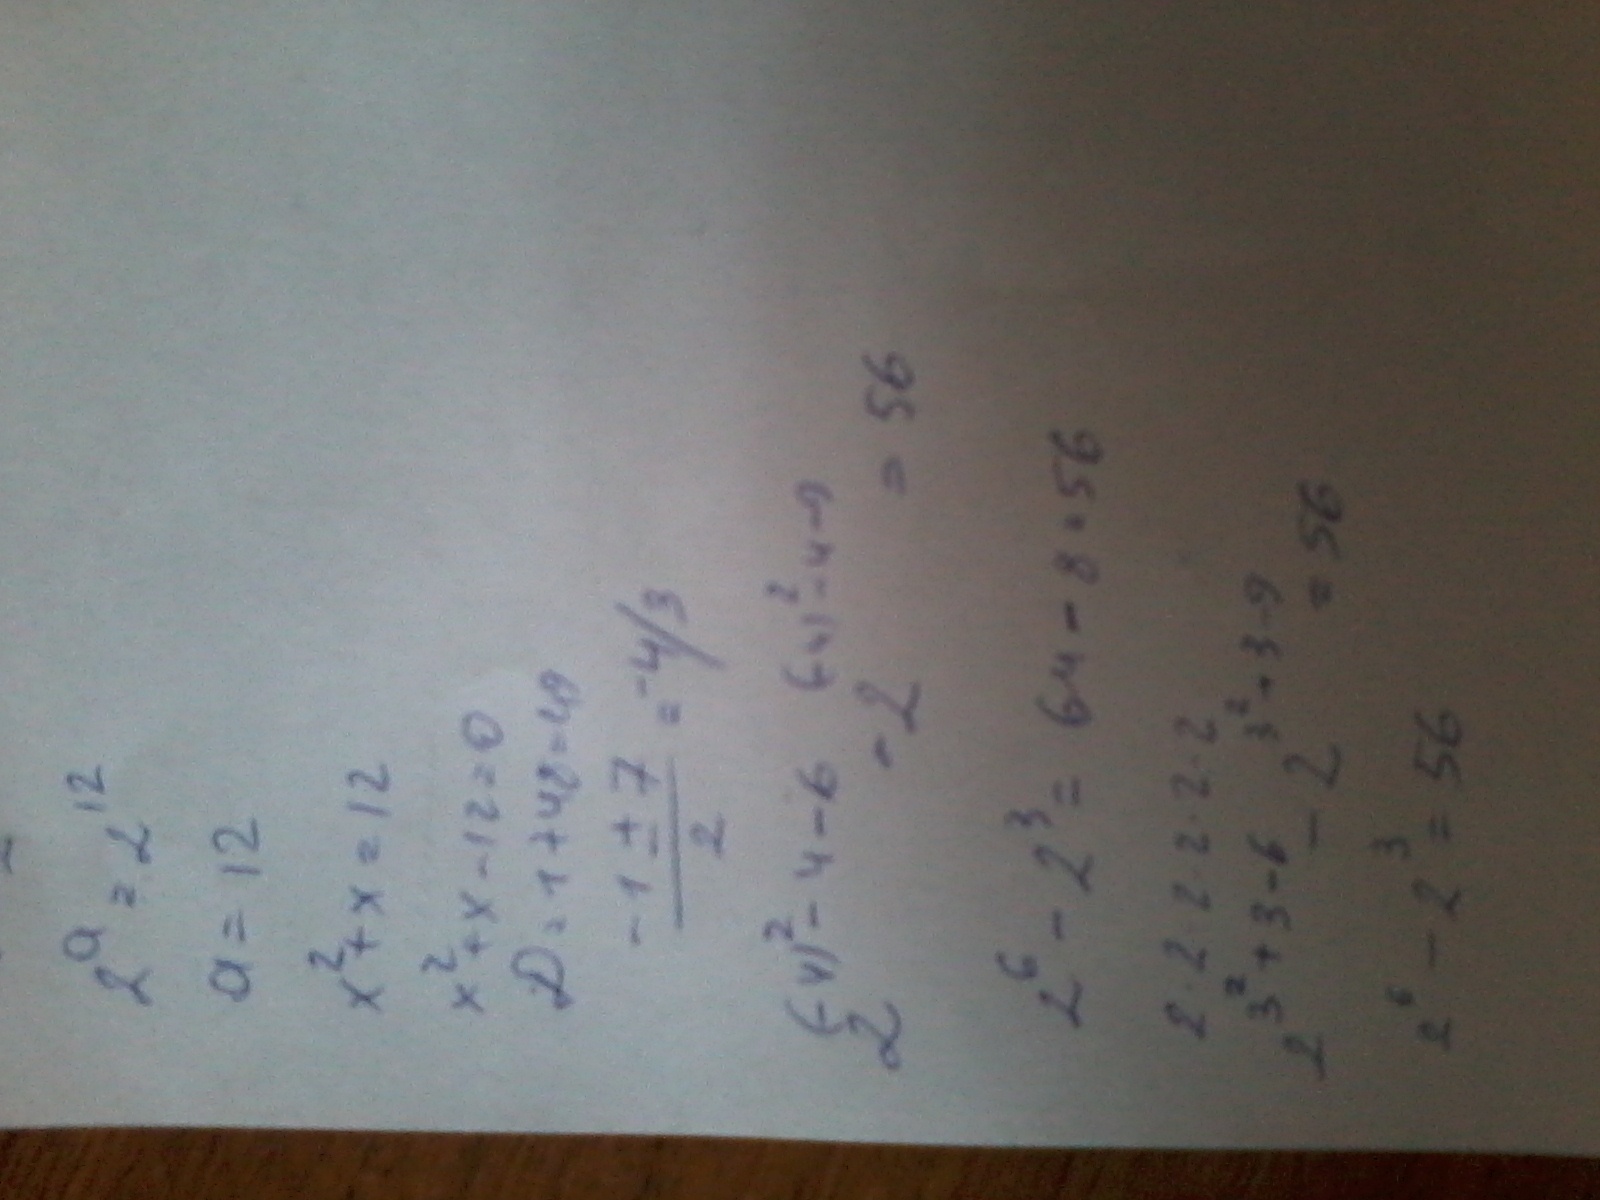 2^a = 2^12
a = 12
x^2 + x = 12
x^2 + x - 12 = 0
D = 1 + 48 = 49
(-1 ± 7)/2 = -4/3
2^((-4)^2 - 4 - 6) - 2^((-4)^2 - 4 - 9) = 56
2^6 - 2^3 = 64 - 8 = 56
2·2·2·2·2·2
2^(3^2 + 3 - 6) - 2^(3^2 + 3 - 9) = 56
2^6 - 2^3 = 56